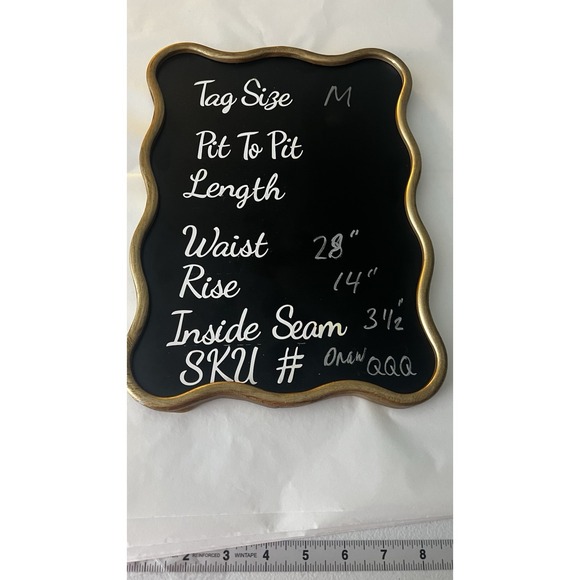 Tag Size M
Pit To Pit
Length
Waist 28"
Rise 14"
Inside Seam 3 1/2"
SKU # Draw QQQ
2 REINFORCED 3 WINTAPE 4 5 6 7 8